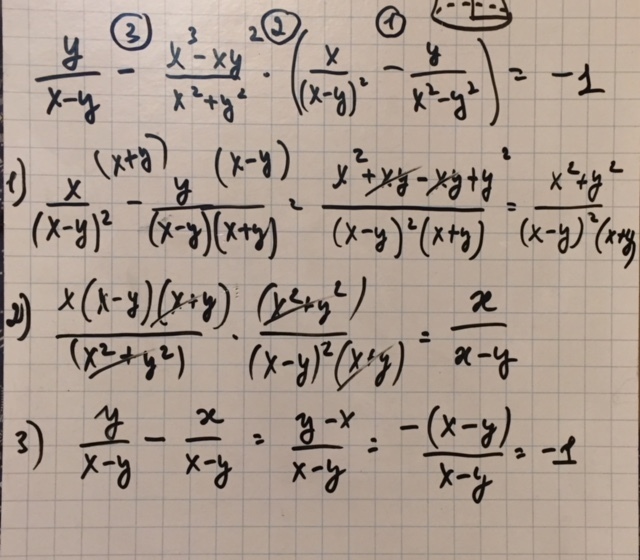 ③ ② ①
y/(x-y) - (x³-xy²)/(x²+y²) · (x/(x-y)² - y/(x²-y²)) = -1
1) x(x+y)/(x-y)² - y(x-y)/((x-y)(x+y)) = (x²+xy-xy+y²)/((x-y)²(x+y)) = (x²+y²)/((x-y)²(x+y))
2) x(x-y)(x+y)/(x²+y²) · (x²+y²)/((x-y)²(x+y)) = x/(x-y)
3) y/(x-y) - x/(x-y) = (y-x)/(x-y) = -(x-y)/(x-y) = -1